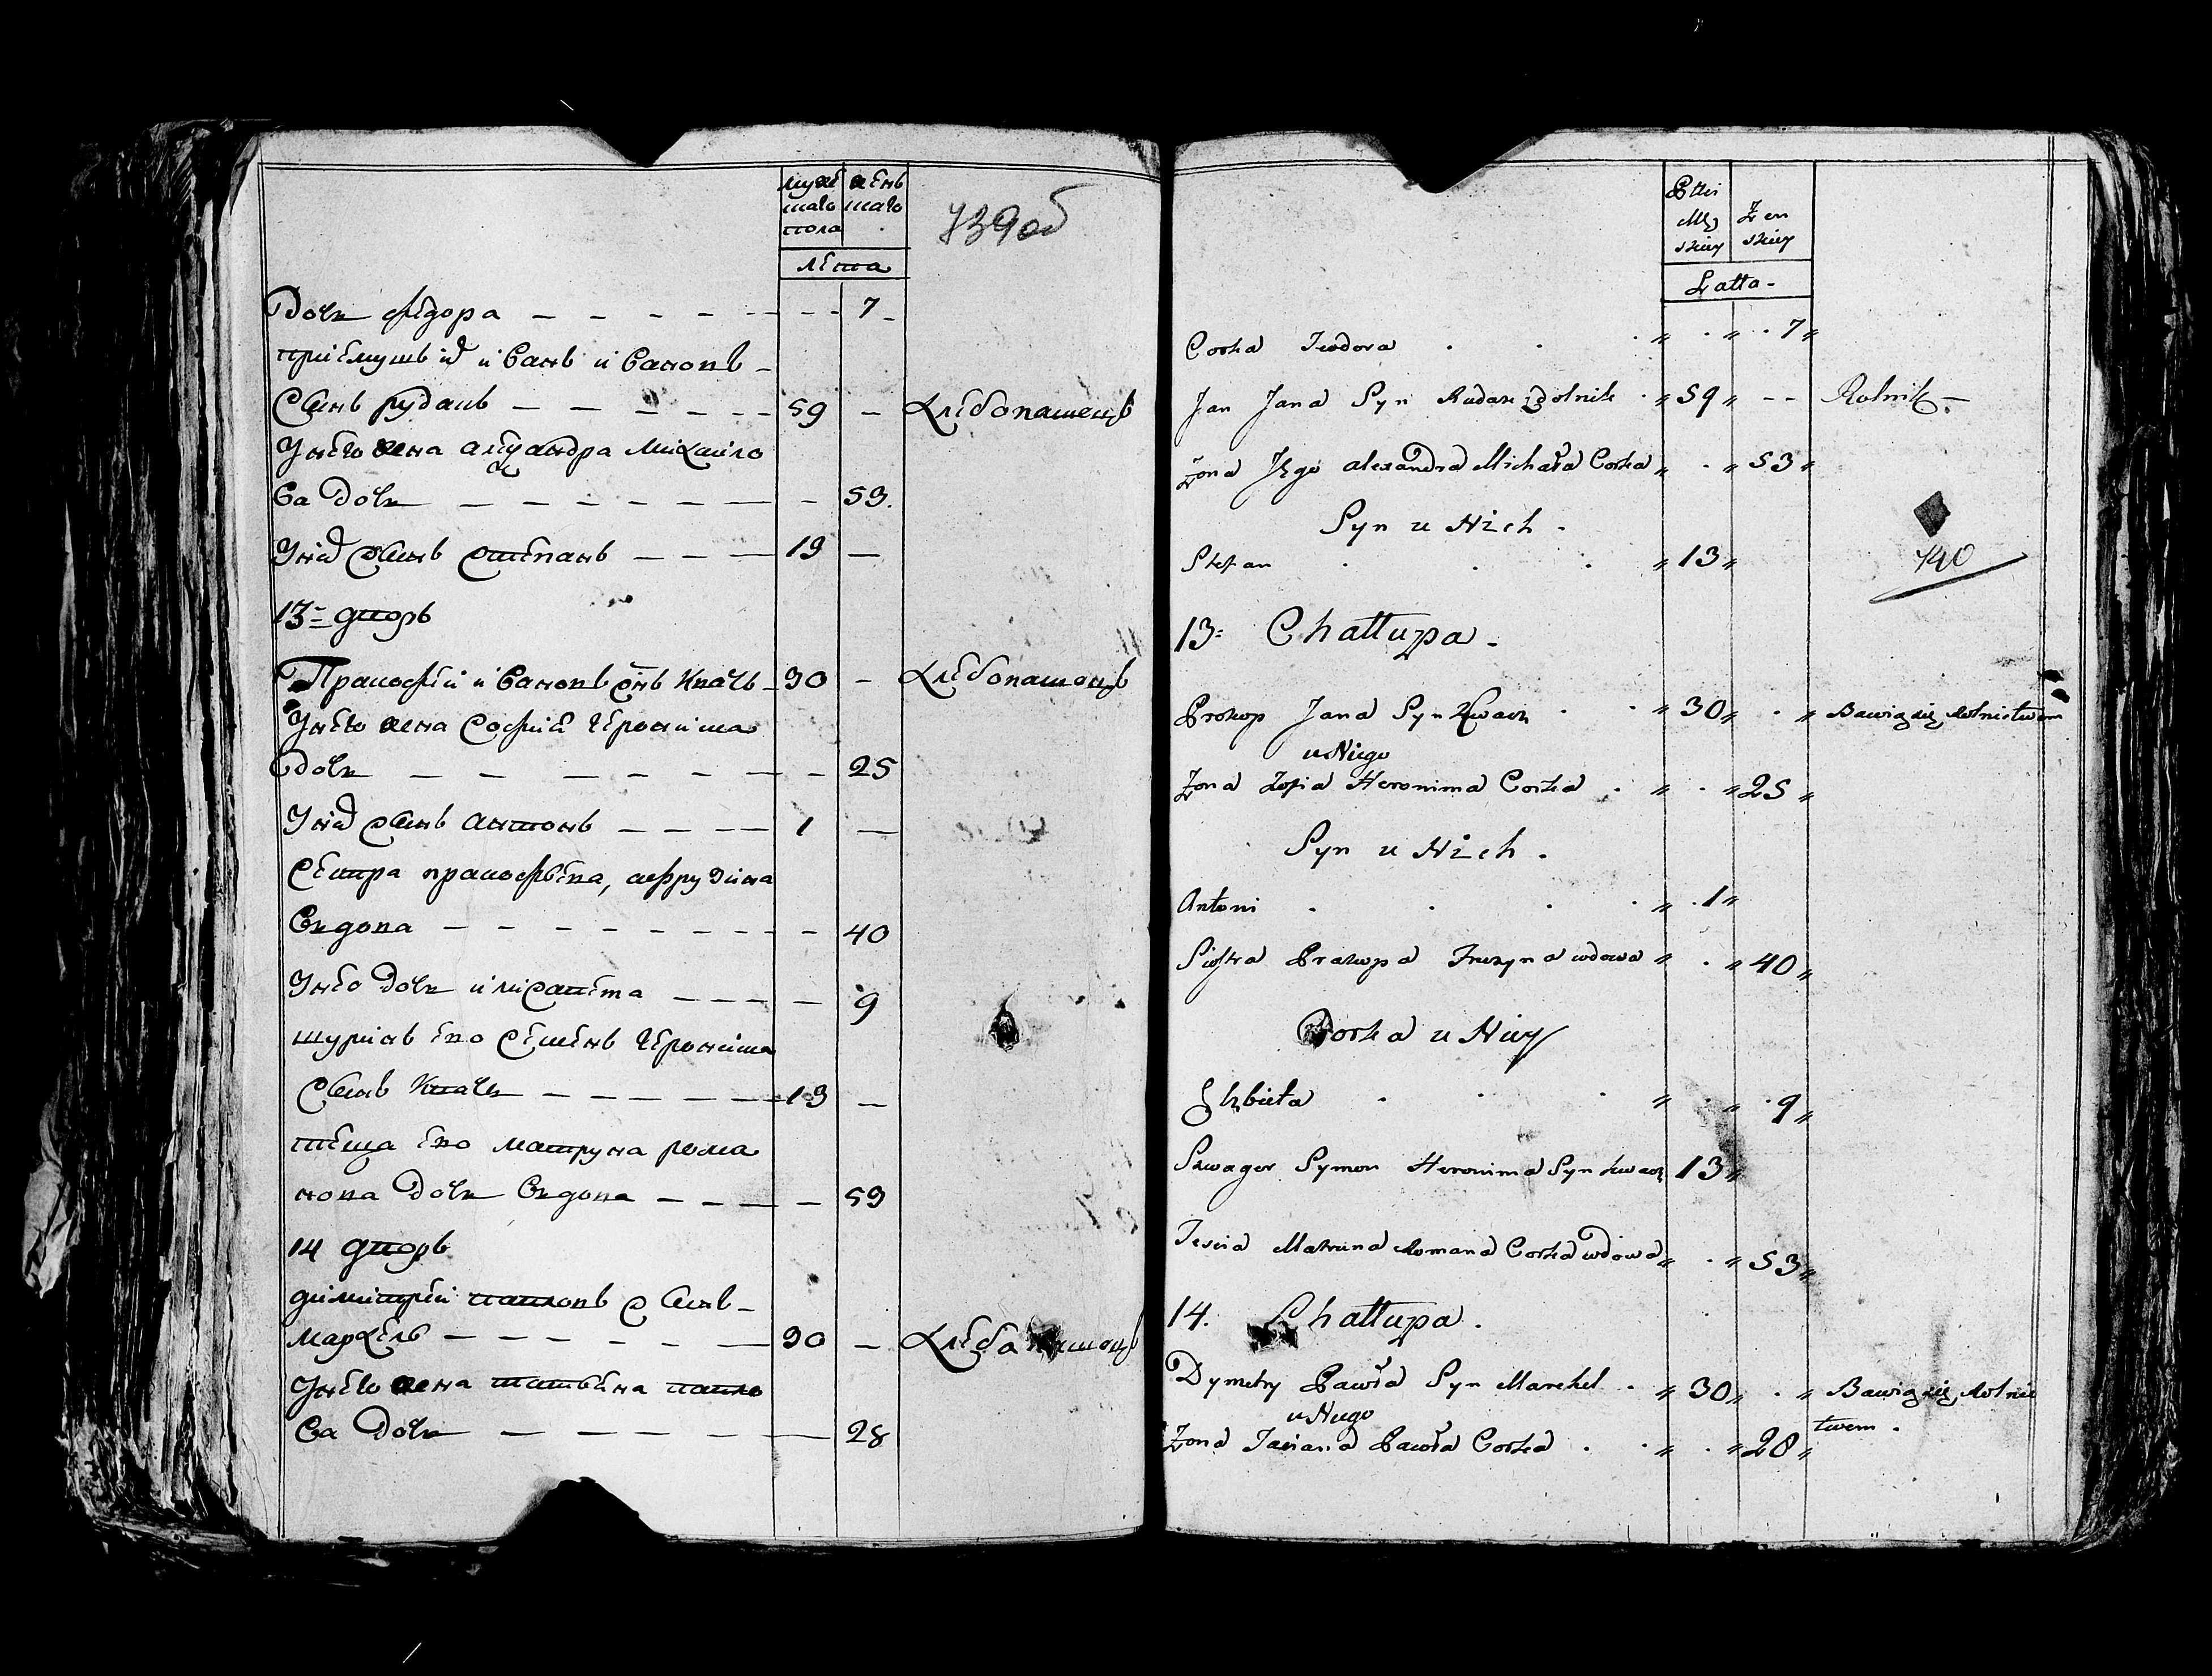 мужескаго пола
женскаго
лета
739об
Дочь федора — 7
приемишъ иванъ ивановъ
Сынъ рудакъ — 59 — Хлебопашецъ
У него жена александра михаило
ва дочь — 53
У них сынъ степанъ — 13 —
13 = дворъ
Пракофей ивановъ снъ квачъ — 30 — Хлебопашецъ
У него жена София Геронима
дочь — 25
У них сынъ антонъ — 1 —
Сестра пракофьева,
вдова — 40
У нее дочь елисавета — 9
шуринъ ево Семенъ Геронима
Сынъ Квачъ — 13 —
теща ево матруна рома
нова дочь вдова — 53
14 дворъ
димитрей павловъ сынъ —
мархель — 30 — Хлебопашецъ
У него жена татьяна павло
ва дочь — 28
Płci
Męzkiey
Żenskiey
Latta -
Corka Teodora . . . 7
Jan Jana Syn Rudak Rolnik 59 - - Rolnik -
Żona Jego Alexandra Michała Corka . 53
Syn u Nich .
Stefan . . . 13
740
13 = Chattupa -
Prokop Jana Syn Kwacz . 30 . Bawiąsię Rolnictwem
u Niego
Żona Zofia Heronima Corka . . 25
Syn u Nich .
Antoni . . . 1
Siostra Prakopa Fruzyna wdowa . 40
Corka u Niey
Elzbieta . . . 9
Szwager Symon Heronima Syn kwacz 13
Teścia Matruna Romana Corka wdowa . 53
14. Chattupa .
Dymetry Pawła Syn Marchel . 30 . Bawiąsię Rolnic
u Niego
twem .
Żona Taciana Pawła Corka . . 28